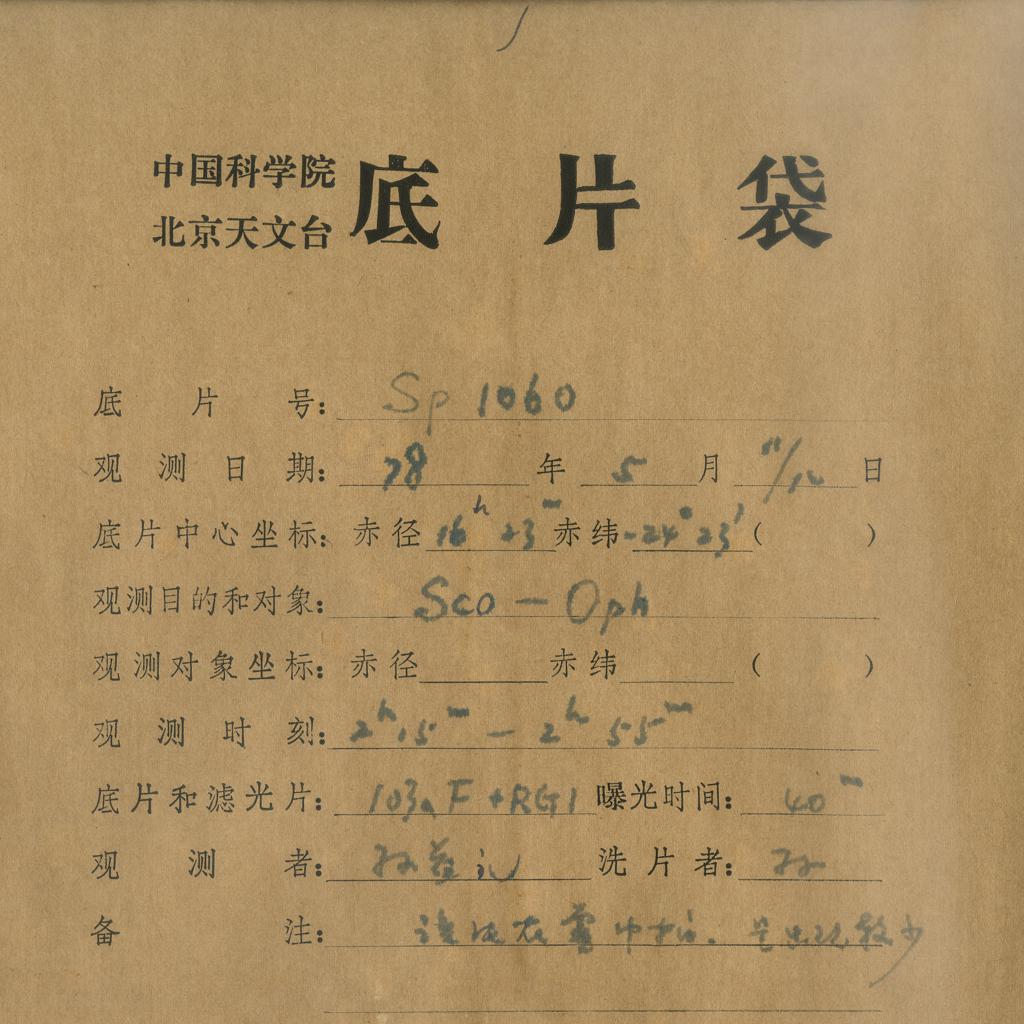 中国科学院
北京天文台 底片袋
底片号: Sp 1060
观测日期: 78年 5月 11/12日
底片中心坐标: 赤径 16h 23m 赤纬 -24° 23′ ( )
观测目的和对象: Sco — Oph
观测对象坐标: 赤径 赤纬 ( )
观测时刻: 2h 15m — 2h 55m
底片和滤光片: 103aF+RG1 曝光时间: 40m
观测者: 孙 洗片者: 孙
备注: 较少